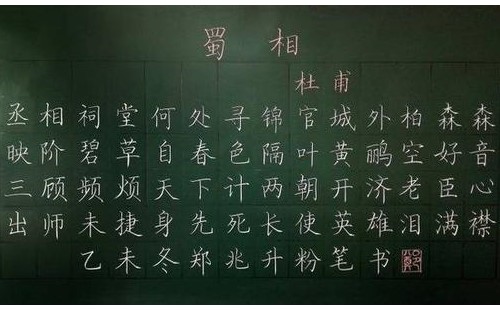 蜀相
杜甫
丞相祠堂何处寻锦官城外柏森森
映阶碧草自春色隔叶黄鹂空好音
三顾频烦天下计两朝开济老臣心
出师未捷身先死长使英雄泪满襟
乙未冬郑兆升粉笔书